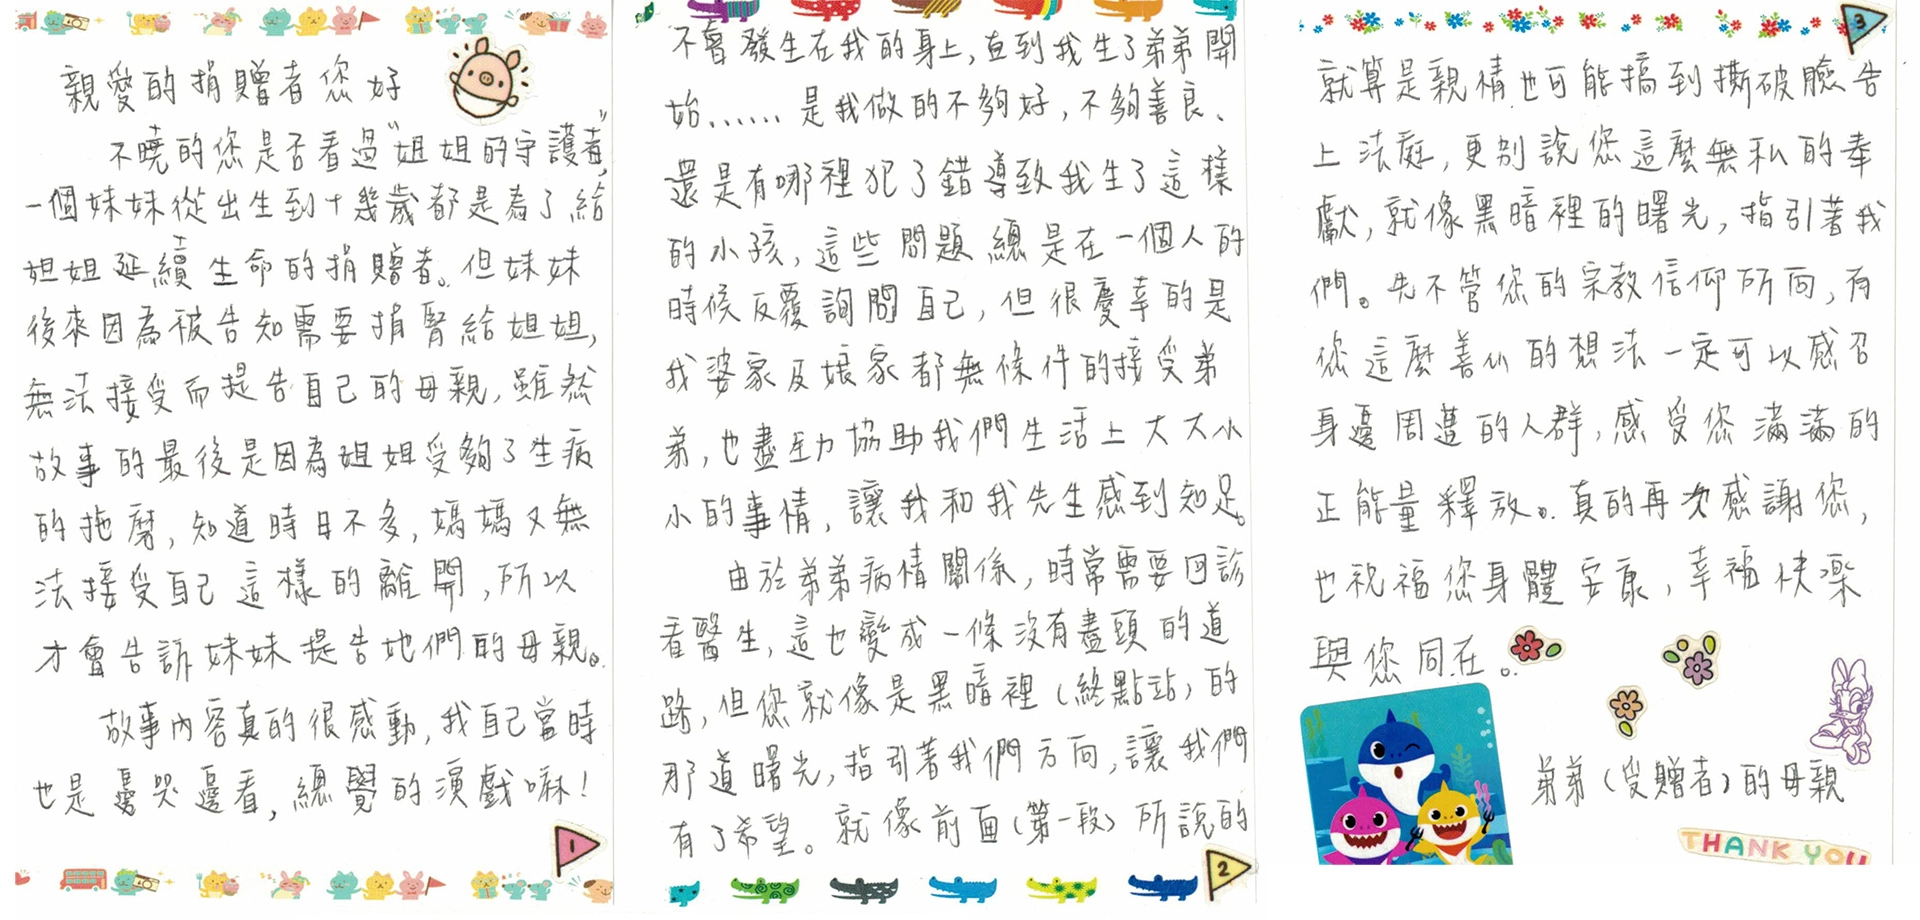 親愛的捐贈者您好
不曉的您是否看過"姐姐的守護者",
一個妹妹從出生到十幾歲都是為了給
姐姐延續生命的捐贈者。但妹妹
後來因為被告知需要捐腎給姐姐,
無法接受而提告自己的母親,雖然
故事的最後是因為姐姐受夠了生病
的拖磨,知道時日不多,媽媽又無
法接受自己這樣的離開,所以
才會告訴妹妹提告她們的母親。
故事內容真的很感動,我自己當時
也是邊哭邊看,總覺的演戲嘛!
1
不會發生在我的身上,直到我生了弟弟開
始......是我做的不夠好,不夠善良、
還是有哪裡犯了錯導致我生了這樣
的小孩,這些問題總是在一個人的
時候反覆詢問自己,但很慶幸的是
我婆家及娘家都無條件的接受弟
弟,也盡全力協助我們生活上大大小
小的事情,讓我和我先生感到知足。
由於弟弟病情關係,時常需要回診
看醫生,這也變成一條沒有盡頭的道
路,但您就像是黑暗裡(終點站)的
那道曙光,指引著我們方向,讓我們
有了希望。就像前面(第一段)所說的
2
3
就算是親情也可能搞到撕破臉告
上法庭,更別說您這麼無私的奉
獻,就像黑暗裡的曙光,指引著我
們。先不管您的宗教信仰所向,有
您這麼善心的想法一定可以感召
身邊周遭的人群,感受您滿滿的
正能量釋放。真的再次感謝您,
也祝福您身體安康,幸福快樂
與您同在。
弟弟(受贈者)的母親
THANK YOU